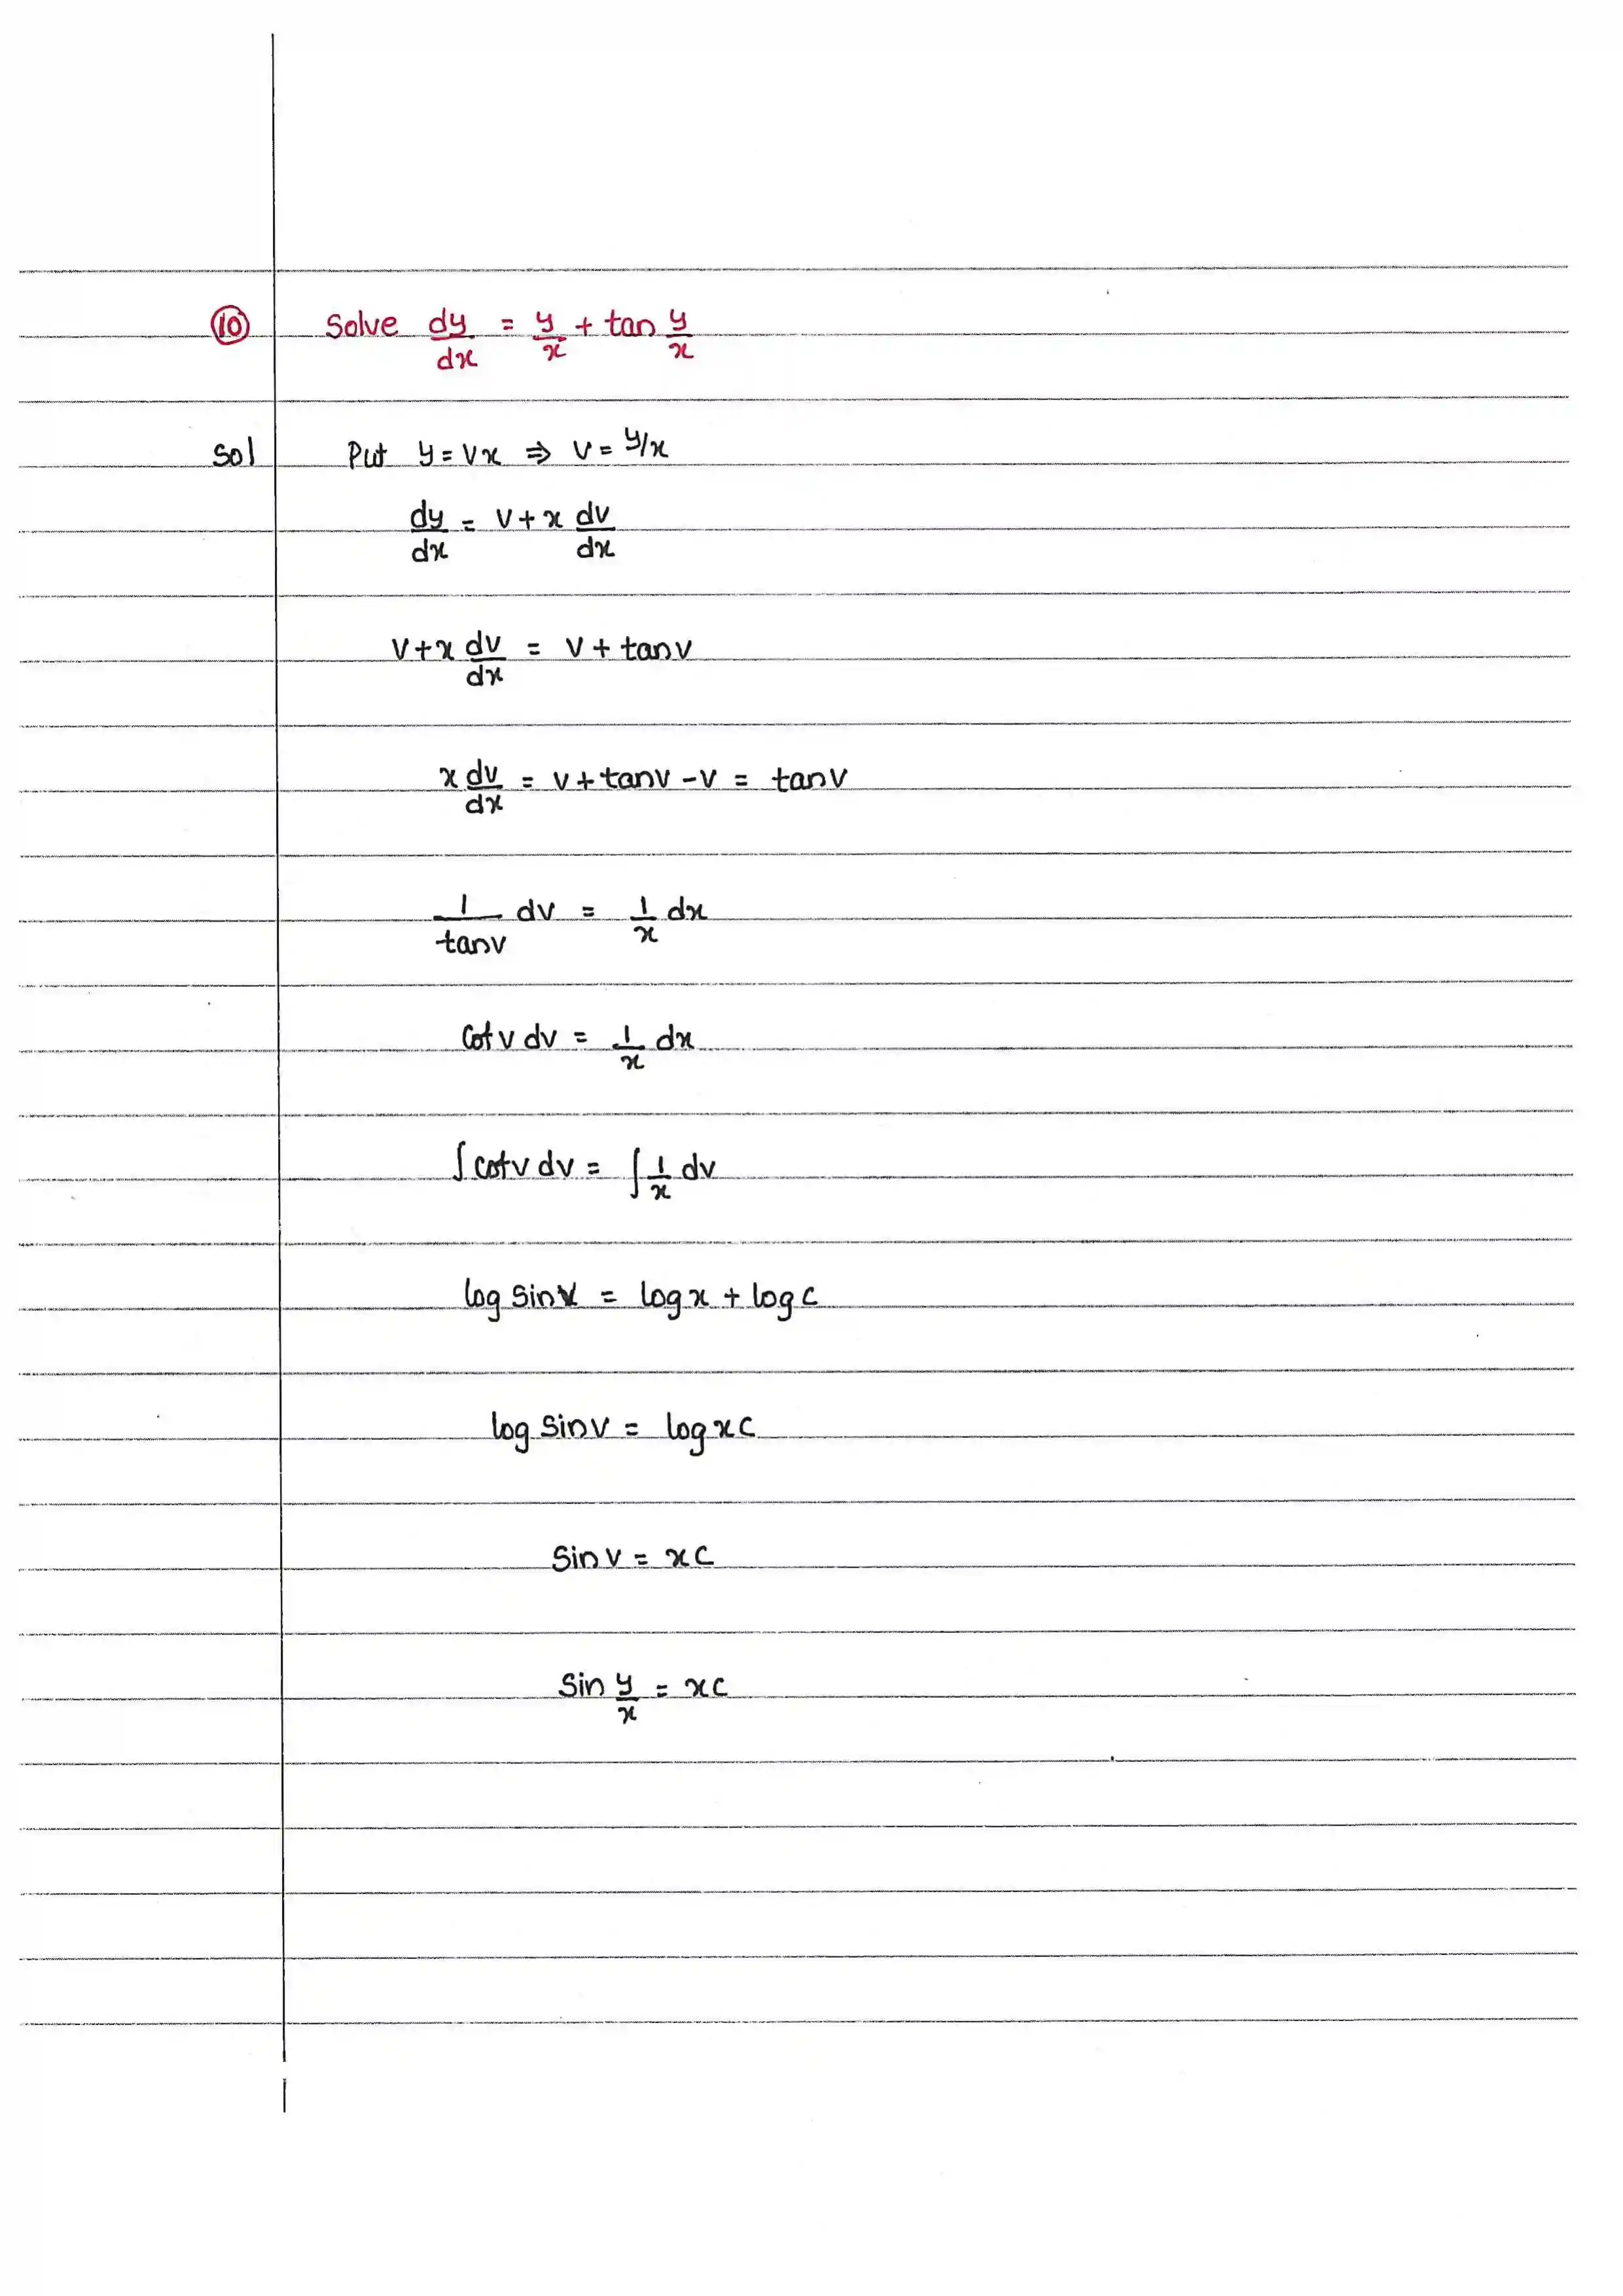 10 Solve dy/dx = y/x + tan y/x
Sol Put y = vx ⇒ v = y/x
dy/dx = v + x dv/dx
v + x dv/dx = v + tanv
x dv/dx = v + tanv - v = tanv
1/tanv dv = 1/x dx
Cotv dv = 1/x dx
∫ cotv dv = ∫ 1/x dv
log Sinv = logx + logc
log Sinv = logxc
Sinv = xc
Sin y/x = xc